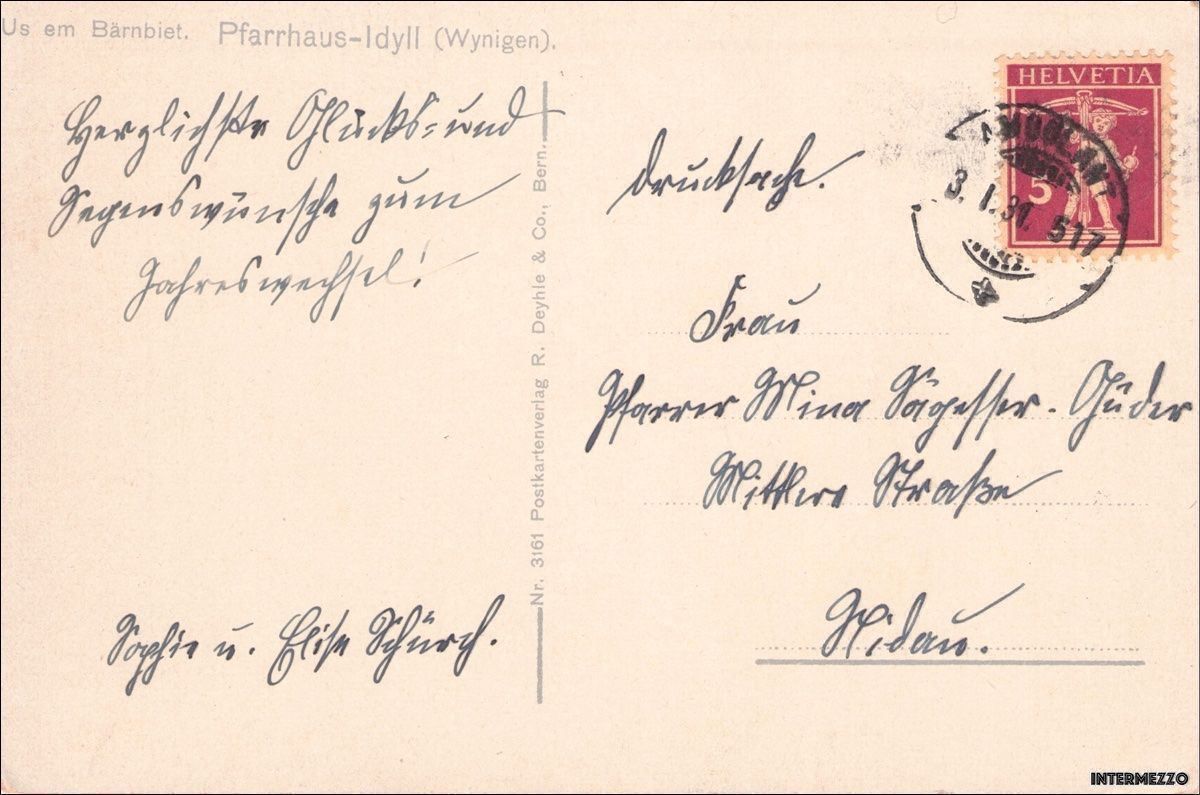 Us em Bärnbiet. Pfarrhaus-Idyll (Wynigen).
Herzlichste Glücks- und
Segenswünsche zum
Jahreswechsel!
Sophie u. Elise Schürch.
Nr. 3161 Postkartenverlag R. Deyhle & Co., Bern.
HELVETIA
5
AMBULANT
3. I. 31. 517
Drucksache.
Frau
Pfarrer Mina Sägesser-Güder
Mittlere Straße
Nidau.
INTERMEZZO